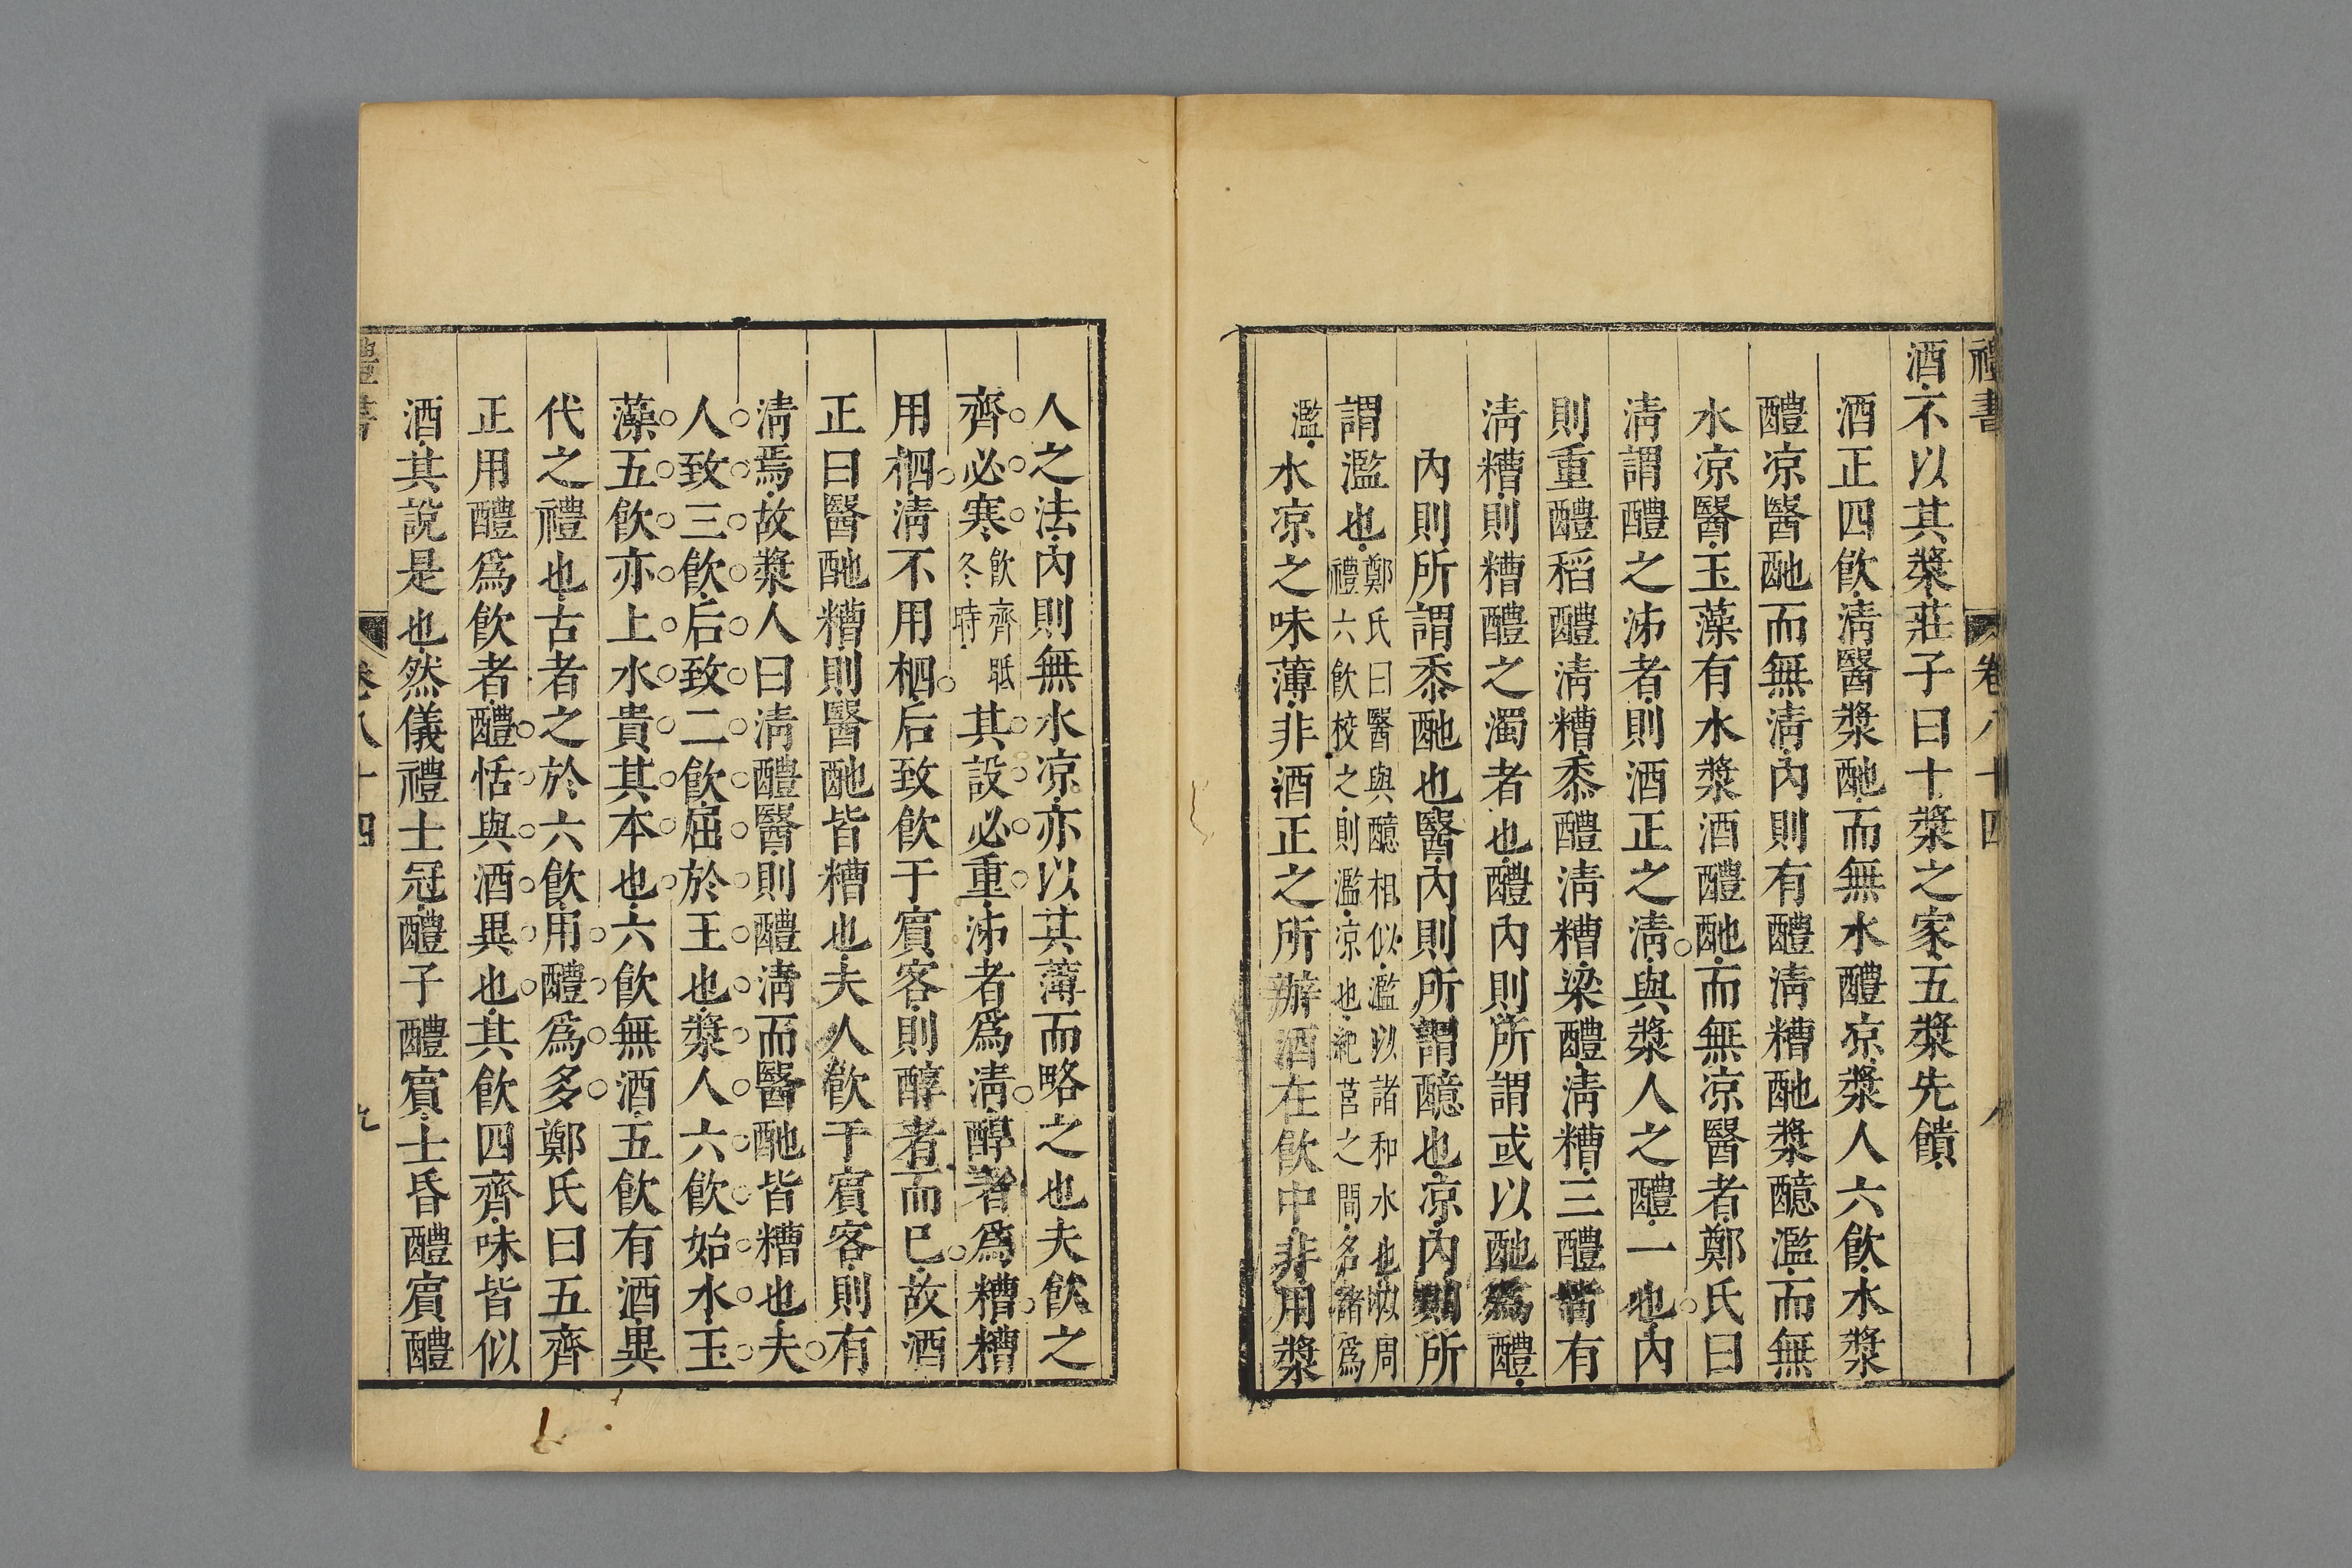 禮書
卷八十四
八
酒不以其漿莊子曰十漿之家五漿先饋
酒正四飲清醫漿酏而無水醴凉漿人六飲水漿
醴凉醫酏而無清內則有醴清糟酏漿醷濫而無
水凉醫玉藻有水漿酒醴酏而無凉醫者鄭氏曰
清謂醴之泲者則酒正之清與漿人之醴一也內
則重醴稻醴清糟黍醴清糟梁醴清糟三醴皆有
清糟則糟醴之濁者也醴內則所謂或以酏爲醴
內則所謂黍酏也醫內則所謂醷也凉內則所
謂濫也鄭氏曰醫與醷相似濫以諸和水也以周
禮六飲校之則濫凉也紀莒之間名諸爲
濫水凉之味薄非酒正之所辦酒在飲中非用漿
人之法內則無水凉亦以其薄而略之也夫飲之
齊必寒飲齊眡
冬時其設必重泲者爲清醇者爲糟糟
用柶清不用柶后致飲于賓客則醇者而已故酒
正曰醫酏糟則醫酏皆糟也夫人飲于賓客則有
清焉故漿人曰清醴醫則醴清而醫酏皆糟也夫
人致三飲后致二飲屈於王也漿人六飲始水玉
藻五飲亦上水貴其本也六飲無酒五飲有酒異
代之禮也古者之於六飲用醴爲多鄭氏曰五齊
正用醴爲飲者醴恬與酒異也其飲四齊味皆似
酒其說是也然儀禮士冠醴子醴賓士昏醴賓醴
禮書
卷八十四
九